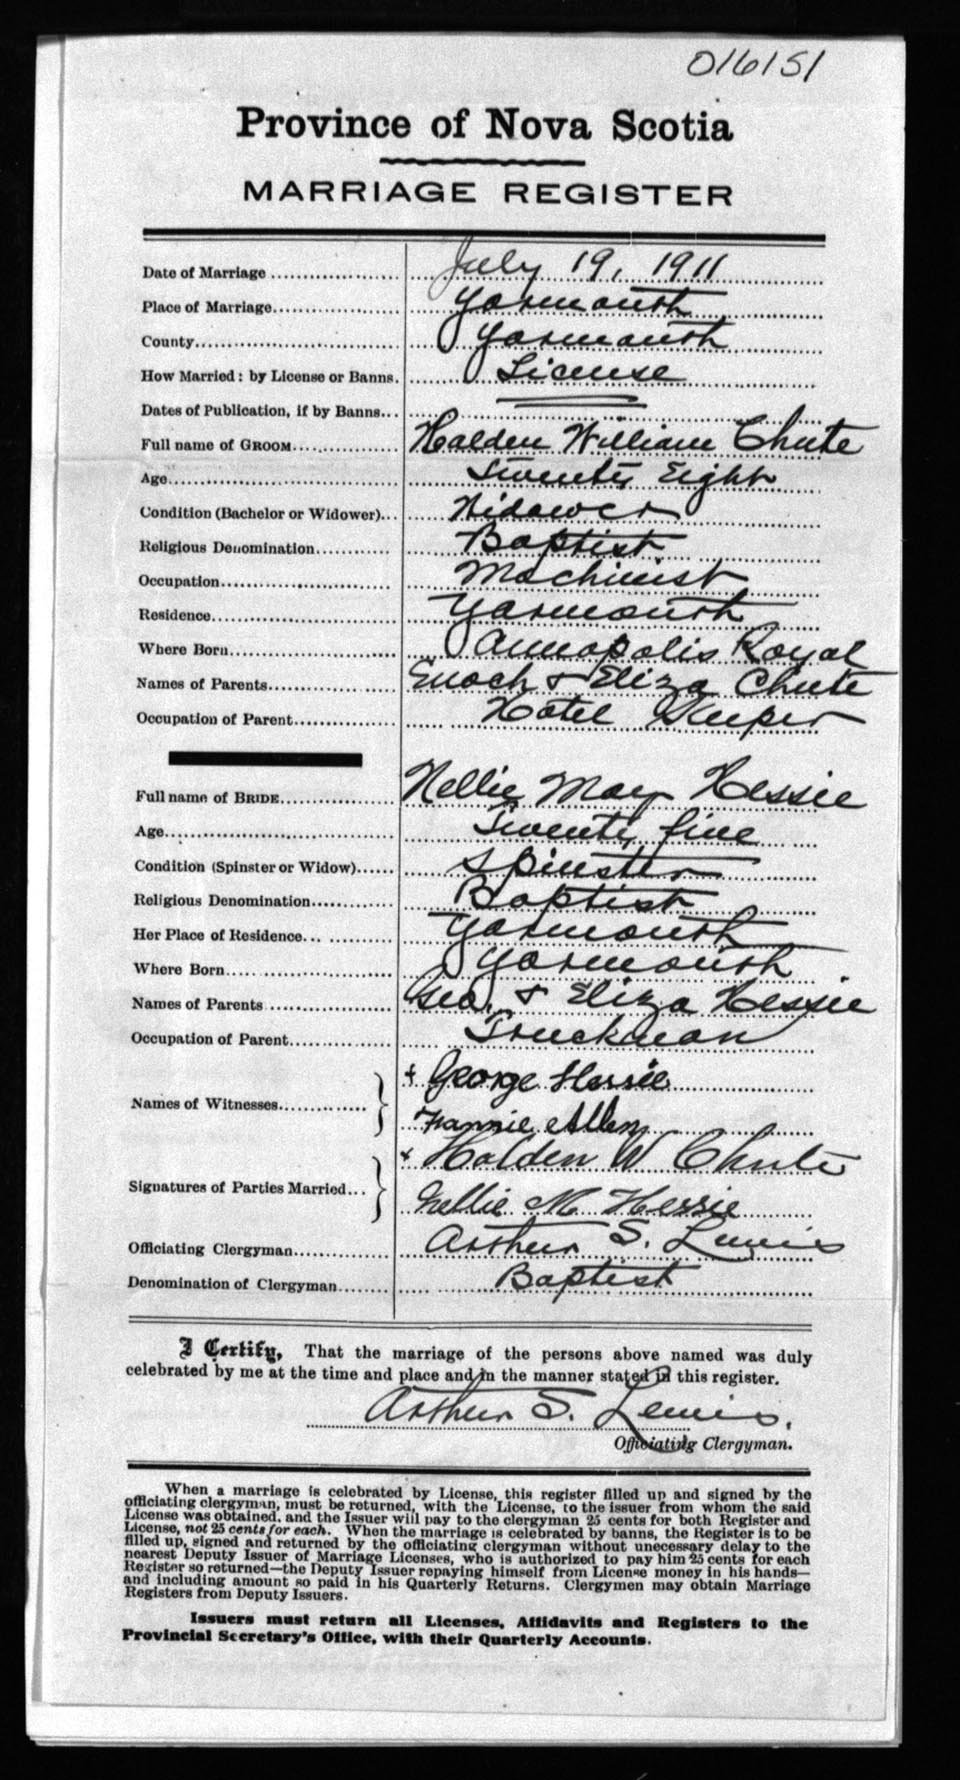 016151
Province of Nova Scotia
MARRIAGE REGISTER
Date of Marriage July 19, 1911
Place of Marriage Yarmouth
County Yarmouth
How Married: by License or Banns. License
Dates of Publication, if by Banns
Full name of GROOM Halden William Chute
Age Twenty Eight
Condition (Bachelor or Widower) Widower
Religious Denomination Baptist
Occupation Machinist
Residence Yarmouth
Where Born Annapolis Royal
Names of Parents Enoch & Eliza Chute
Occupation of Parent Hotel Keeper
Full name of BRIDE Nellie May Hessie
Age Twenty five
Condition (Spinster or Widow) Spinster
Religious Denomination Baptist
Her Place of Residence Yarmouth
Where Born Yarmouth
Names of Parents Geo. & Eliza Hessie
Occupation of Parent Truckman
+ George Hessie
Names of Witnesses
Fannie Allen
+ Holden W Chute
Signatures of Parties Married
Nellie M Hessie
Officiating Clergyman Arthur S. Lewis
Denomination of Clergyman Baptist
I Certify, That the marriage of the persons above named was duly
celebrated by me at the time and place and in the manner stated in this register.
Arthur S. Lewis.
Officiating Clergyman.
When a marriage is celebrated by License, this register filled up and signed by the
officiating clergyman, must be returned, with the License, to the issuer from whom the said
License was obtained, and the Issuer will pay to the clergyman 25 cents for both Register and
License, not 25 cents for each. When the marriage is celebrated by banns, the Register is to be
filled up, signed and returned by the officiating clergyman without unecessary delay to the
nearest Deputy Issuer of Marriage Licenses, who is authorized to pay him 25 cents for each
Register so returned—the Deputy Issuer repaying himself from License money in his hands—
and including amount so paid in his Quarterly Returns. Clergymen may obtain Marriage
Registers from Deputy Issuers.
Issuers must return all Licenses, Affidavits and Registers to the
Provincial Secretary's Office, with their Quarterly Accounts.